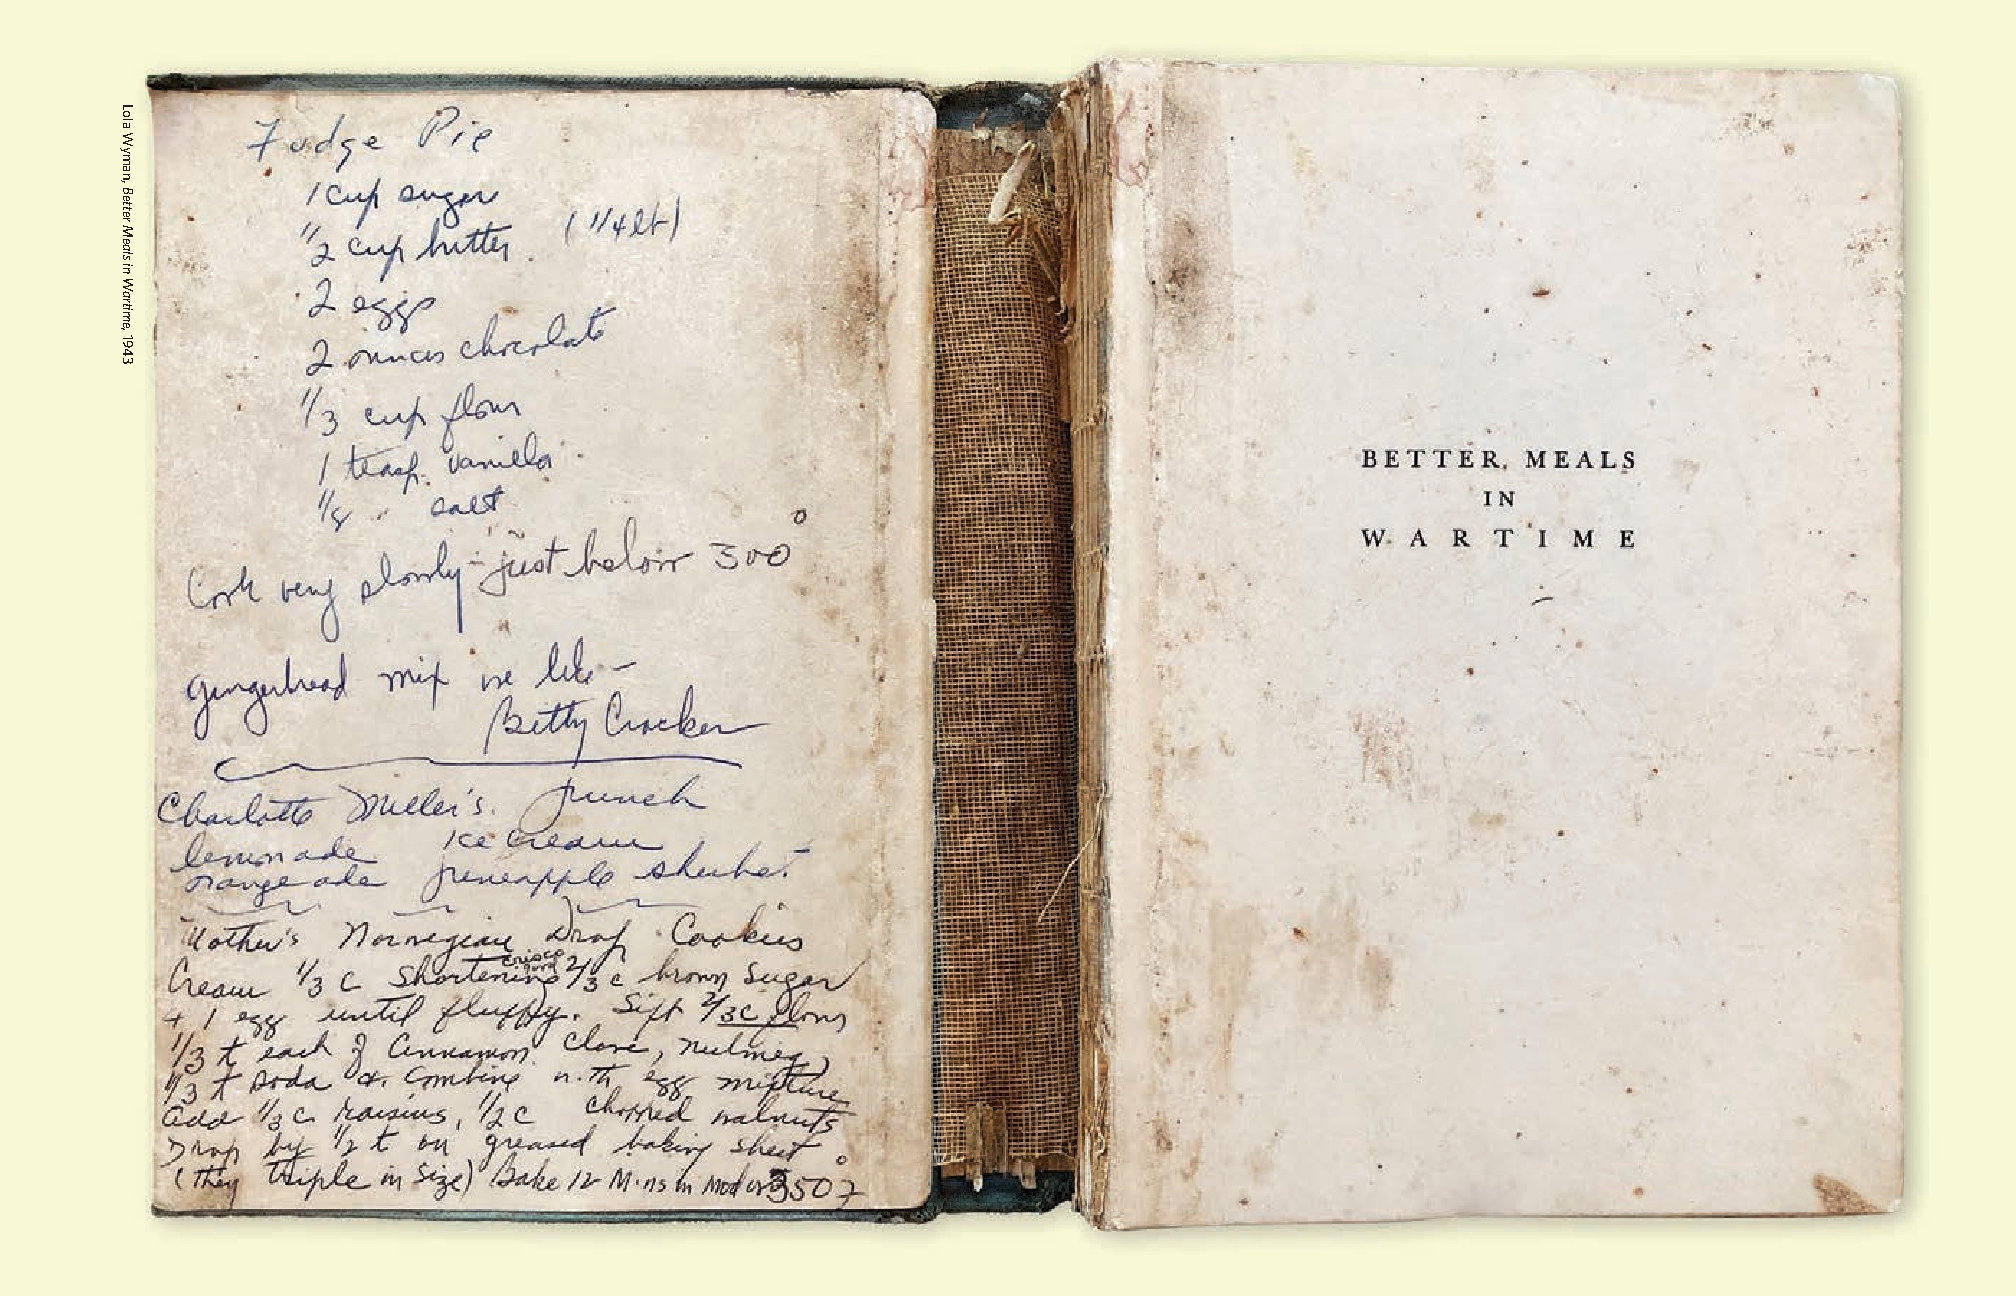 Lola Wyman, Better Meals in Wartime, 1943
Fudge Pie
1 cup sugar
1/2 cup butter (1/4 lb)
2 eggs
2 ounces chocolate
1/3 cup flour
1 teasp. vanilla
1/8 " salt
Cook very slowly - just below 300°
gingerbread mix we like -
Betty Crocker
Charlotte Miller's. punch
lemonade ice cream
orangeade pineapple sherbet
Mother's Norwegian Drop Cookies
crisco
Cream 1/3 c shortening 2/3 c brown sugar
+ 1 egg until fluffy. Sift 2/3 c flour
1/3 t each of cinnamon clove, nutmeg,
1/3 t soda & combine with egg mixture
add 1/3 c. raisins, 1/2 c chopped walnuts
Drop by 1/2 t on greased baking sheet
(they triple in size) Bake 12 Mins in mod ov 350° F
BETTER MEALS
IN
WARTIME